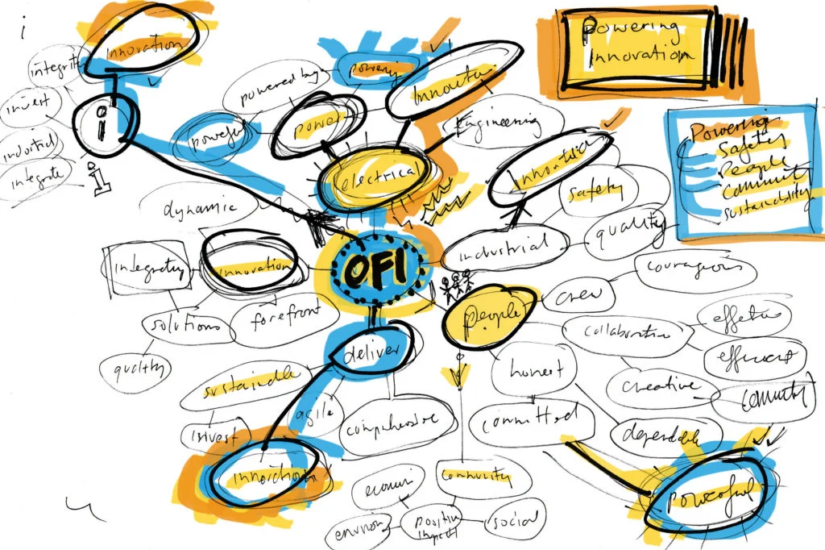 i
innovation
integrity
invest
industrial
integrate
i
i
powerful
powered by
Powering
Power
electrical
Innovation
Engineering
Powering
Innovation
Powering
Safety
People
Community
Sustainability
Innovation
safety
quality
industrial
dynamic
integrity
innovation
solutions
forefront
quality
OFI
people
crew
courageous
collaborative
effective
efficient
creative
honest
committed
dependable
powerful
deliver
sustainable
agile
invest
comprehensive
innovation
community
positive
impact
social